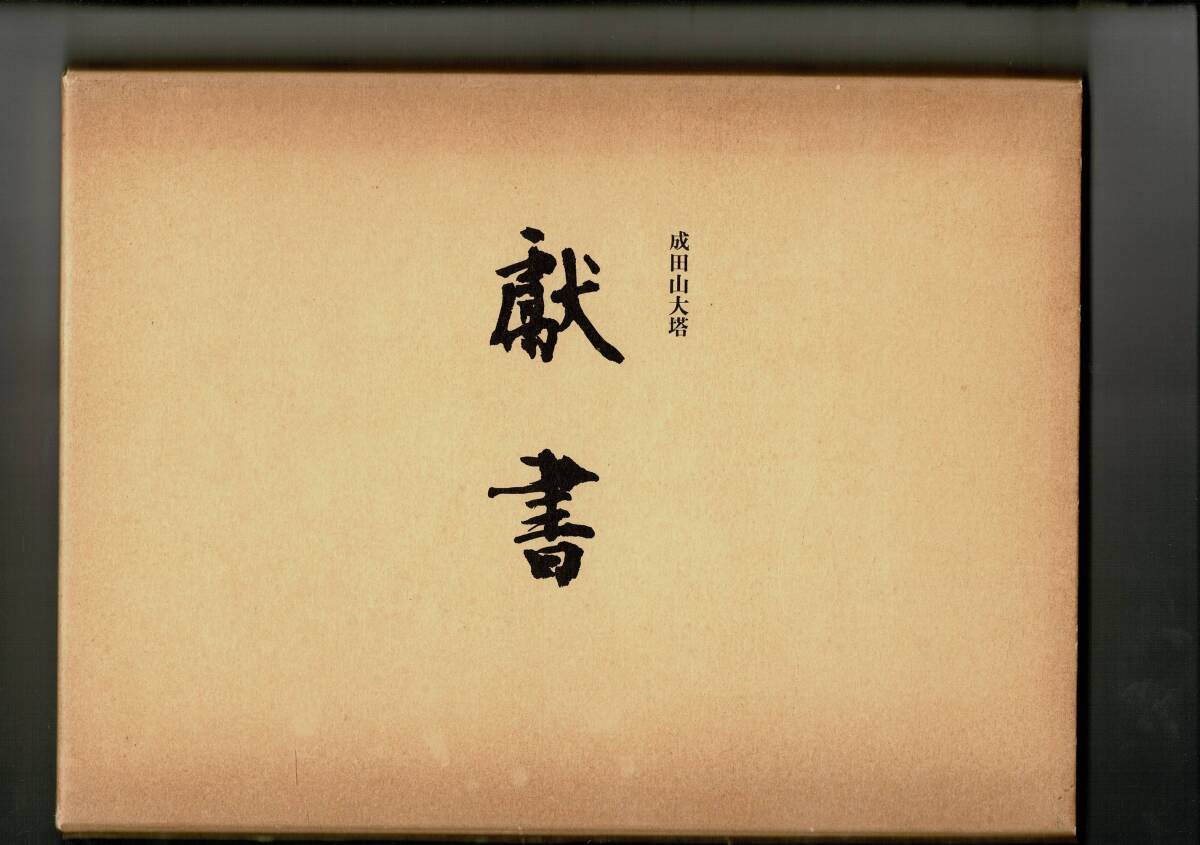 成田山大塔
獻書